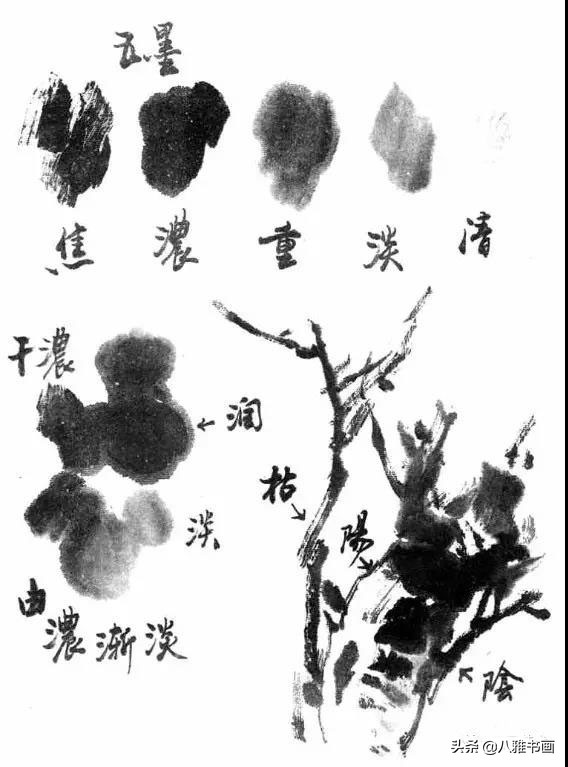 五墨
焦 濃 重 淡 清
干濃
润
淡
由濃漸淡
枯
陽
陰
头条 @八雅书画